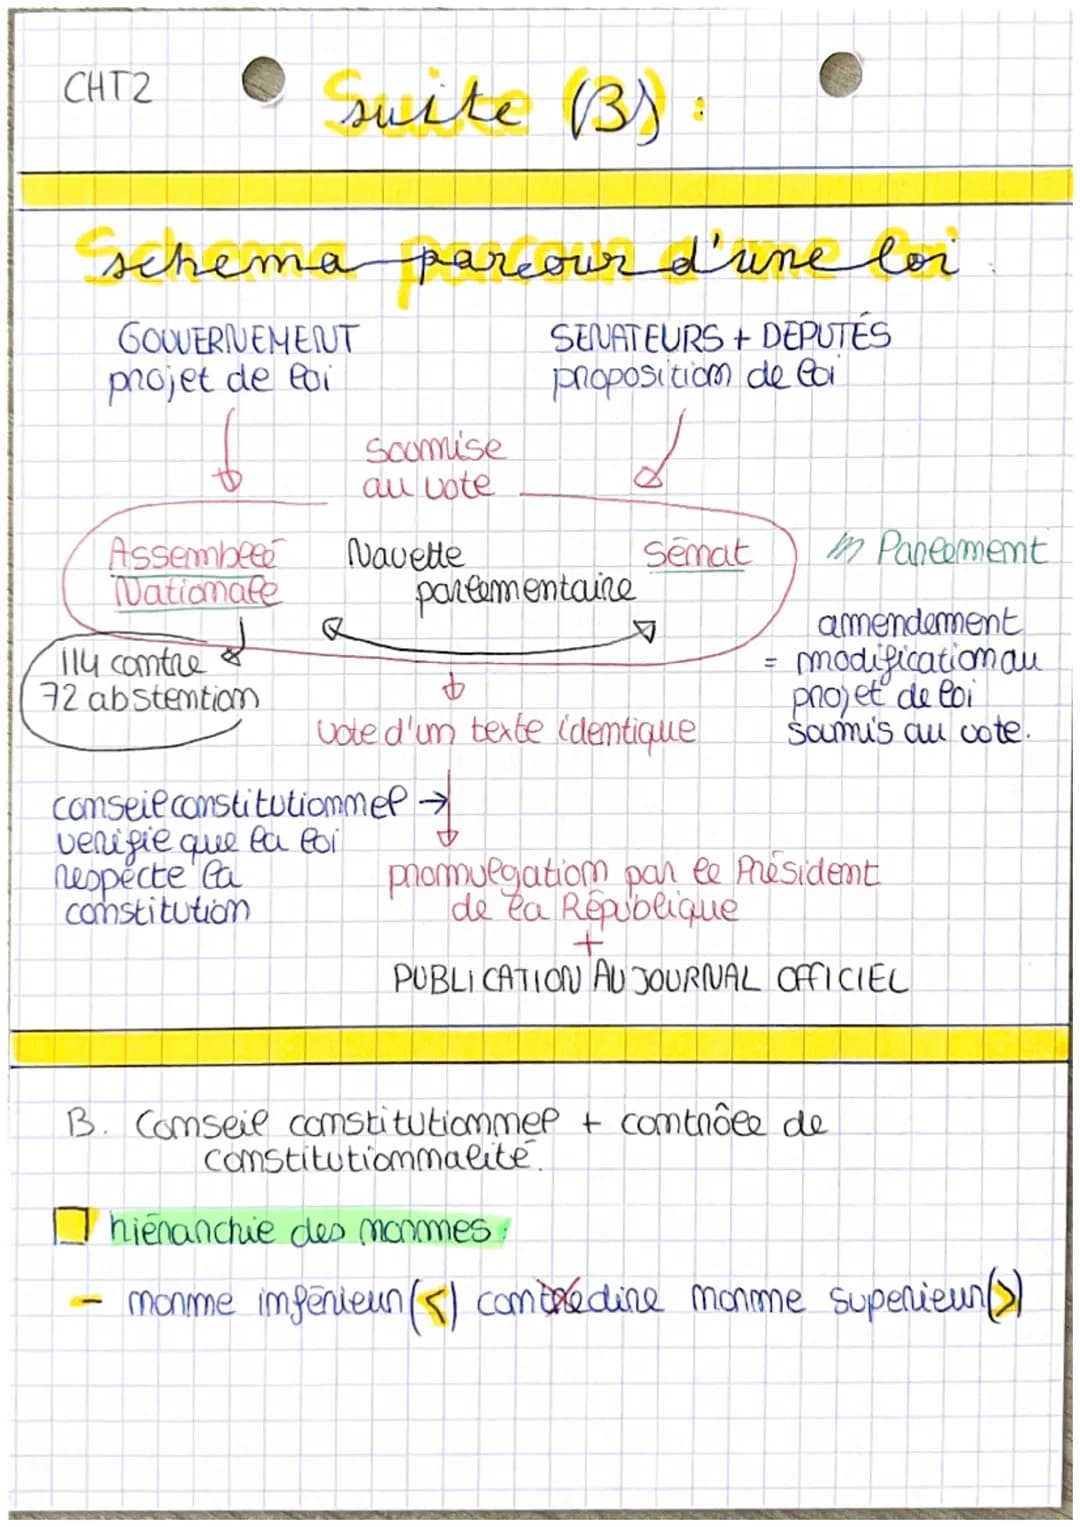 CHT2
Suite (B) :
Schema parcour d'une loi
GOUVERNEMENT
projet de loi
SENATEURS + DEPUTÉS
proposition de loi
Soumise
au vote
Assemblée
Nationale
Navette
parlementaire
Sénat
Parlement
114 contre
72 abstention
amendement
= modification au
projet de loi
soumis au vote.
vote d'un texte identique
conseil constitutionnel →
verifie que la loi
respécte la
constitution
promulgation par le Président
de la République
+
PUBLICATION AU JOURNAL OFFICIEL
B. Conseil constitutionnel + contrôle de
constitutionnalité.
hiérarchie des normes :
- norme inférieur (<) contredire norme superieur (>)